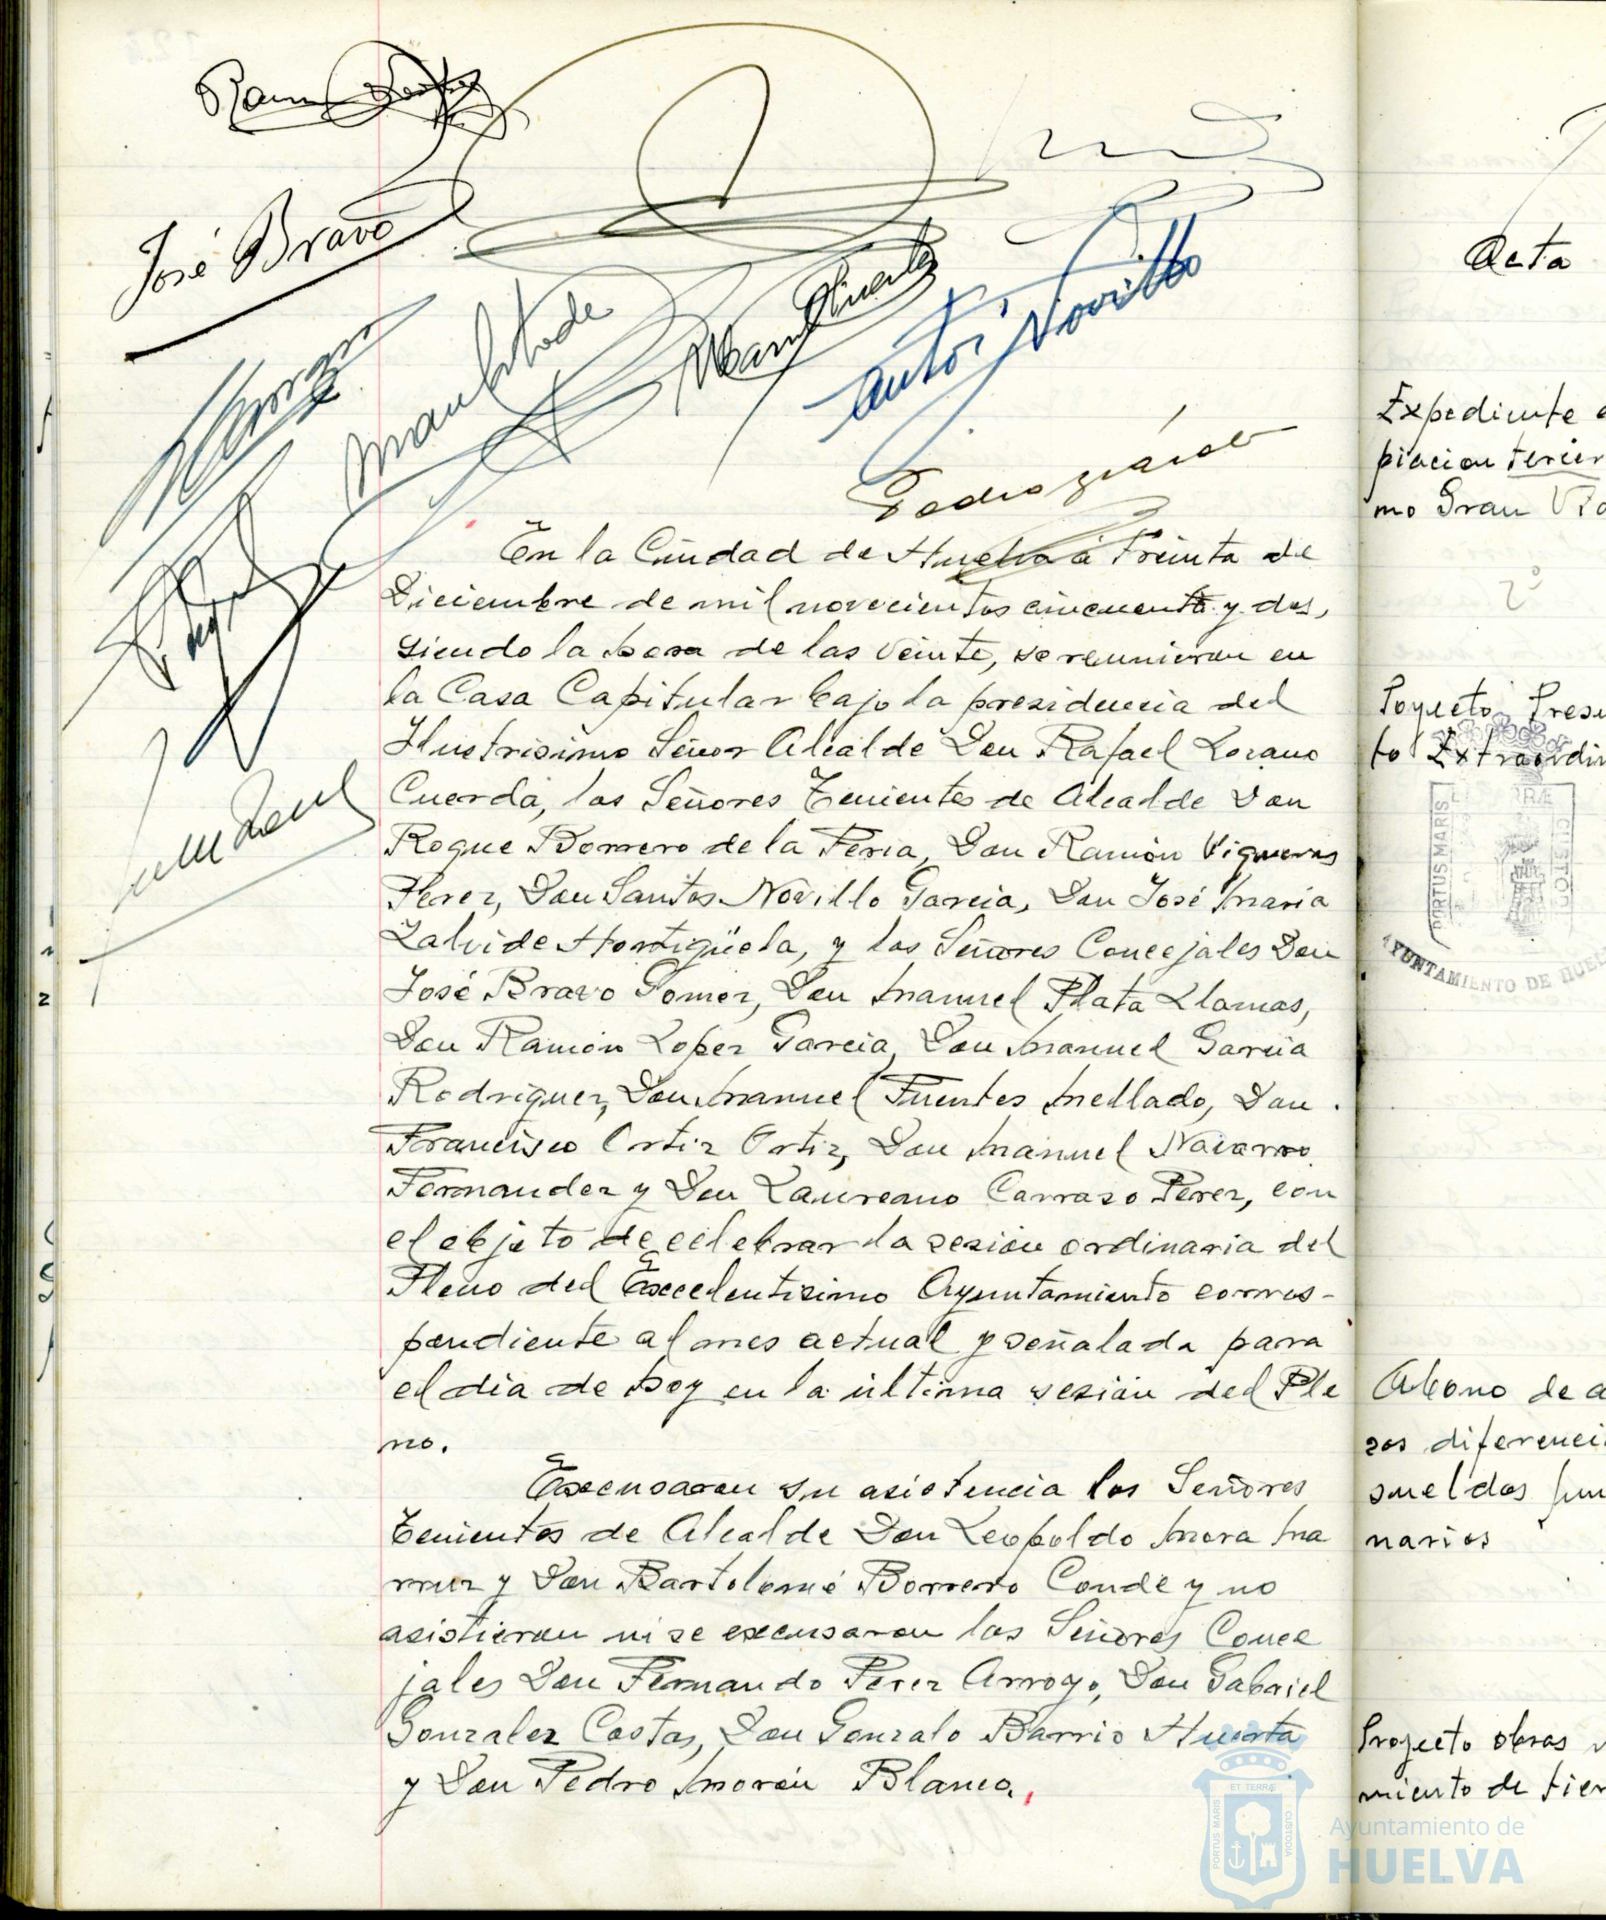 José Bravo
En la Ciudad de Huelva a treinta de
Diciembre de mil novecientos cincuenta y dos,
siendo la hora de las veinte, se reunieron en
la Casa Capitular bajo la presidencia del
Ilustrisimo Señor Alcalde Don Rafael Lozano
Cuerda, los Señores Tenientes de Alcalde Don
Roque Borrero de la Feria, Don Ramón Vigueras
Perez, Don Santos Novillo Garcia, Don José Maria
Zalvide Hortigüela, y los Señores Concejales Don
José Bravo Gomez, Don Manuel Plata Llamas,
Don Ramón Lopez Garcia, Don Manuel Garcia
Rodriguez, Don Manuel Fuentes Mellado, Don
Francisco Ortiz Ortiz, Don Manuel Navarro
Fernandez y Don Laureano Carrazo Perez, con
el objeto de celebrar la sesión ordinaria del
Pleno del Excelentisimo Ayuntamiento corres-
pondiente al mes actual y señalada para
el día de hoy en la última sesión del Ple
no.
Excusaron su asistencia los Señores
Tenientes de Alcalde Don Leopoldo Mora Ma
rruz y Don Bartolomé Borrero Conde y no
asistieron ni se excusaron los Señores Conce
jales Don Fernando Perez Arroyo, Don Gabriel
Gonzalez Costas, Don Gonzalo Barrio Huerta
y Don Pedro Morón Blanco.
Acta
Expediente
piacion tercer
mo Gran
2º
Poyecto Presu
to Extraordin
PORTUS MARIS
CUSTODI
AYUNTAMIENTO DE HUEL
Abono de a
zos diferenci
sueldos fun
narios
Proyecto obras
miento de tier
PORTUS MARIS ET TERRÆ CUSTODIA
Ayuntamiento de
HUELVA